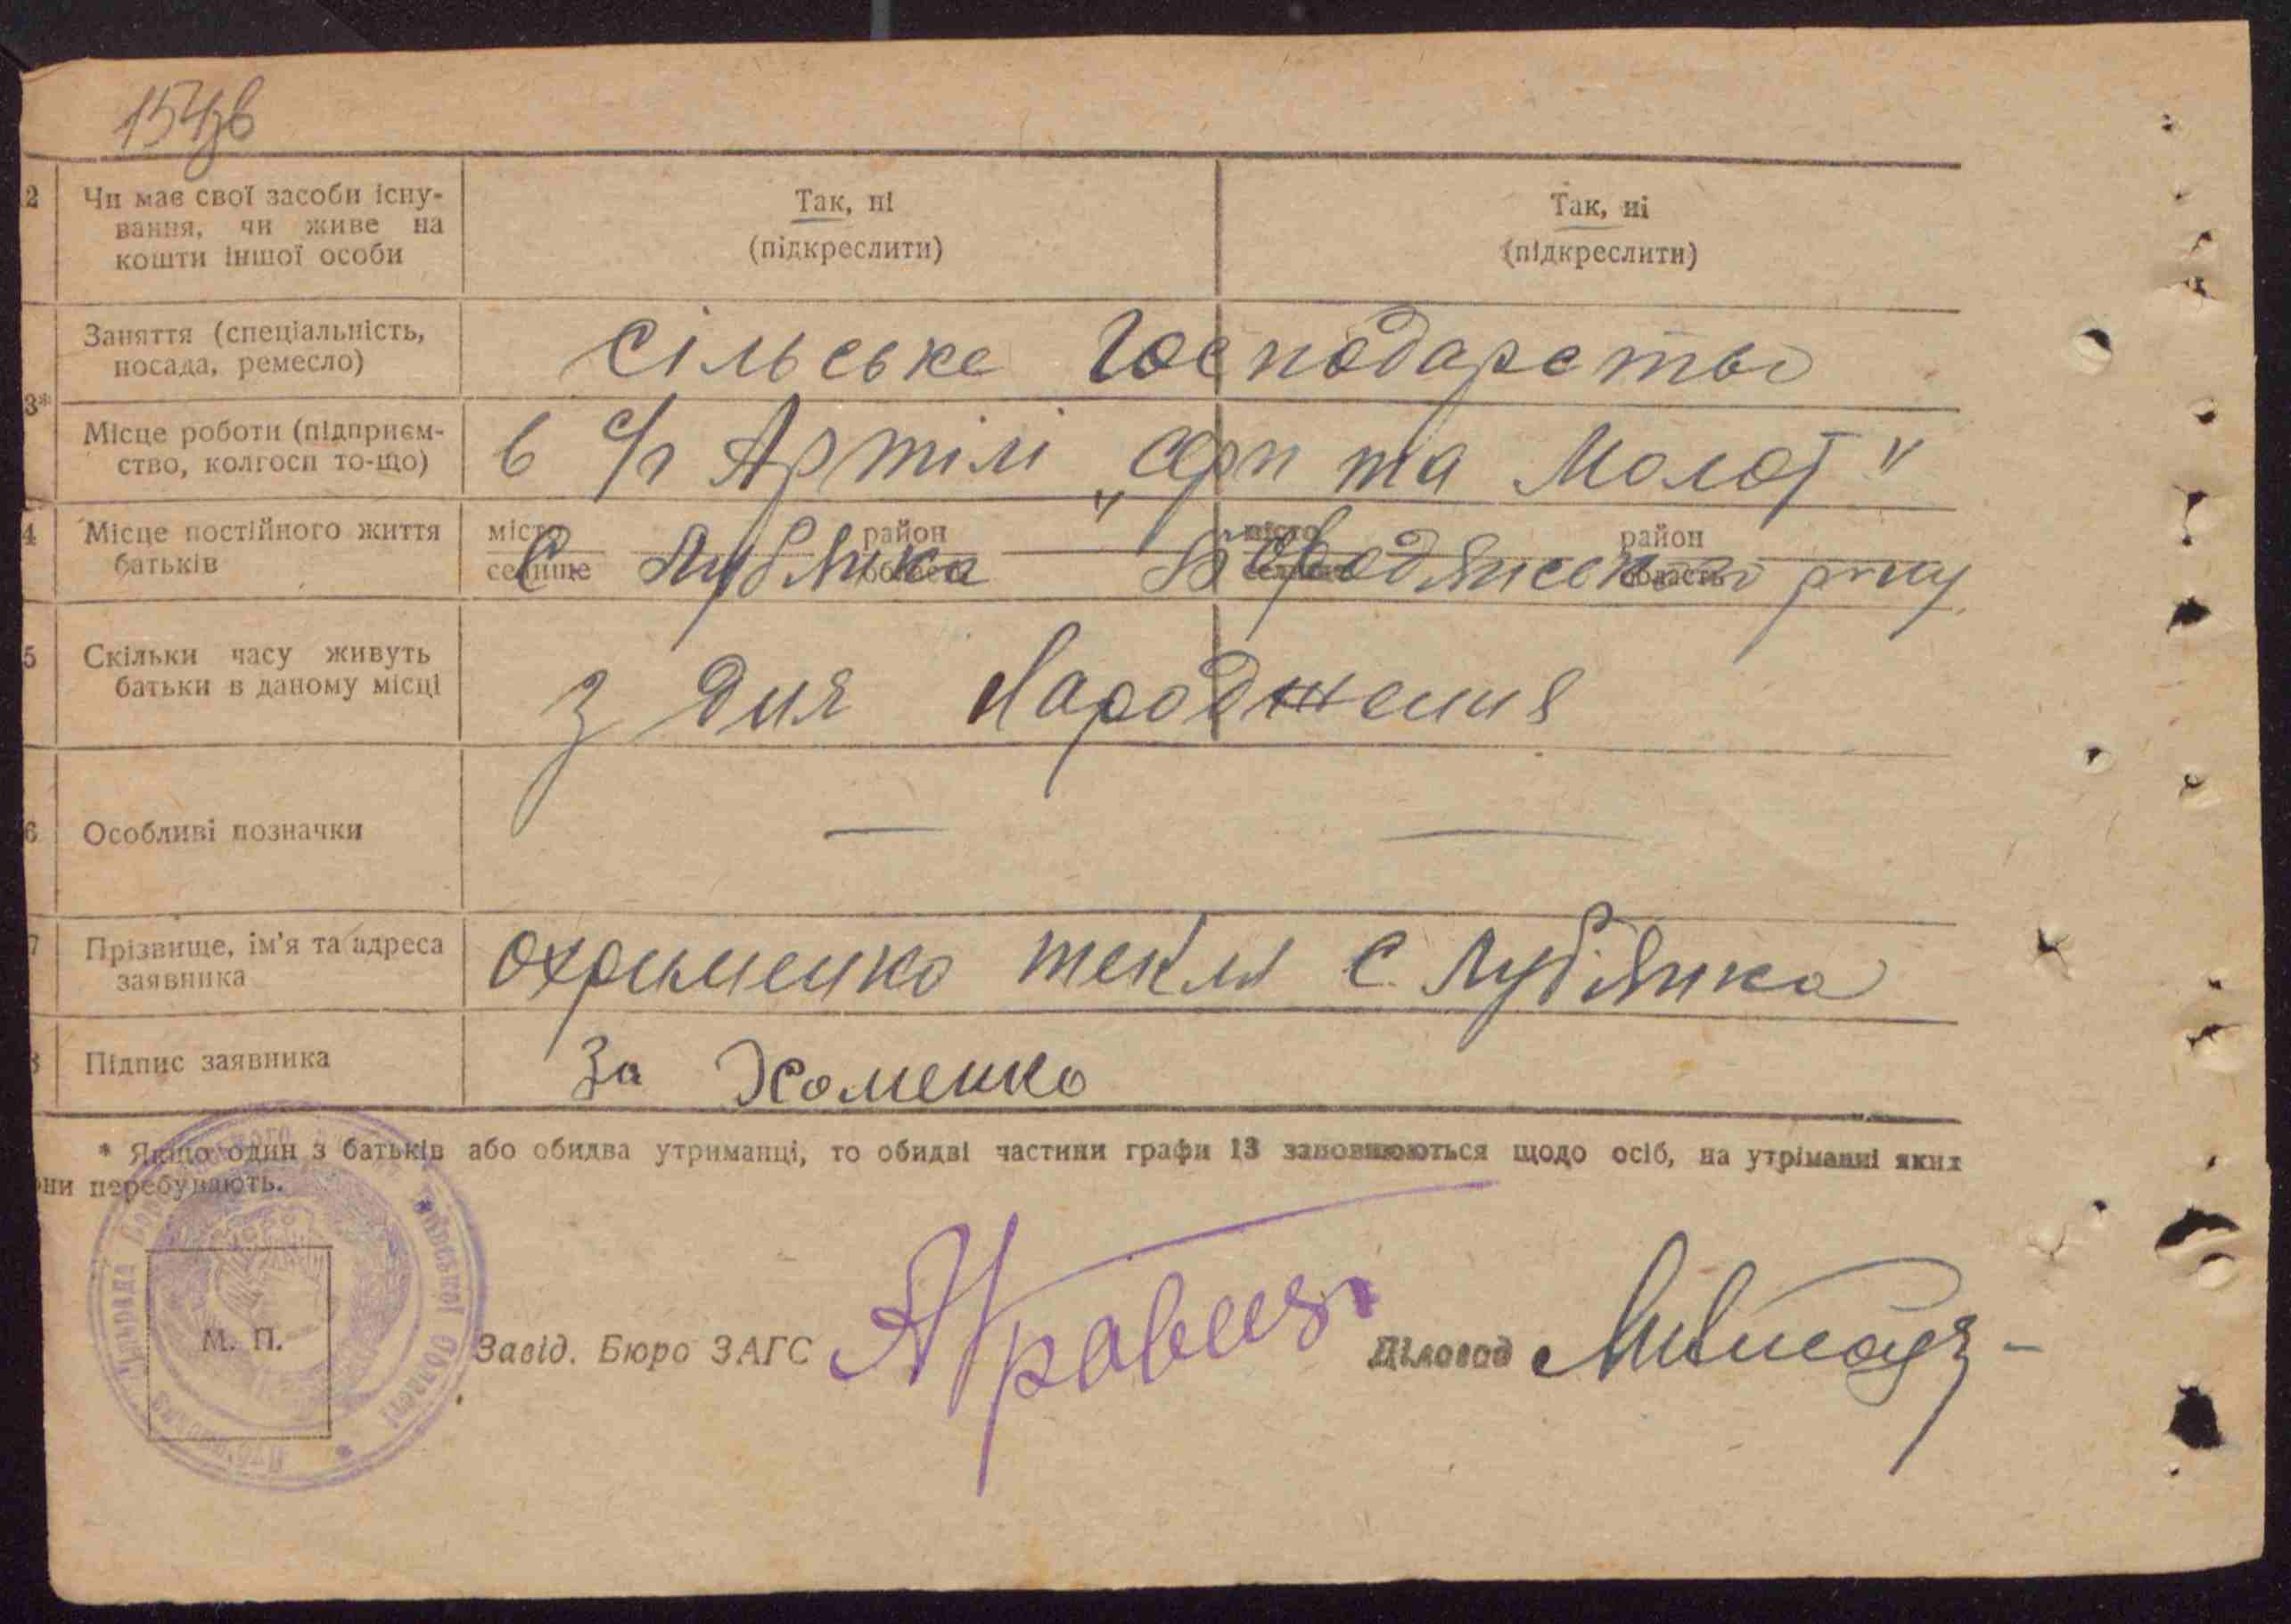 2 Чи має свої засоби існу-
вання, чи живе на
кошти іншої особи
Так, ні
(підкреслити)
Так, ні
(підкреслити)
3*
Заняття (спеціальність,
посада, ремесло)
сільське Господарство
Місце роботи (підприєм-
ство, колгосп то-що)
в с/г Артілі „серп та Молот"
4 Місце постійного життя
батьків
місто
селище
район
область
місто
селище
район
область
С. Лубянка Бородянського р-ну
5 Скільки часу живуть
батьки в даному місці
з дня Народження
6 Особливі позначки
— —
7 Прізвище, ім'я та адреса
заявника
охрименко текля с. Лубянка
8 Підпис заявника
За Хоменко
* Якщо один з батьків або обидва утриманці, то обидві частини графи 13 заповнюються щодо осіб, на утріманні яких
они перебувають.
М. П.
Київської Області
Завід. Бюро ЗАГС
Діловод